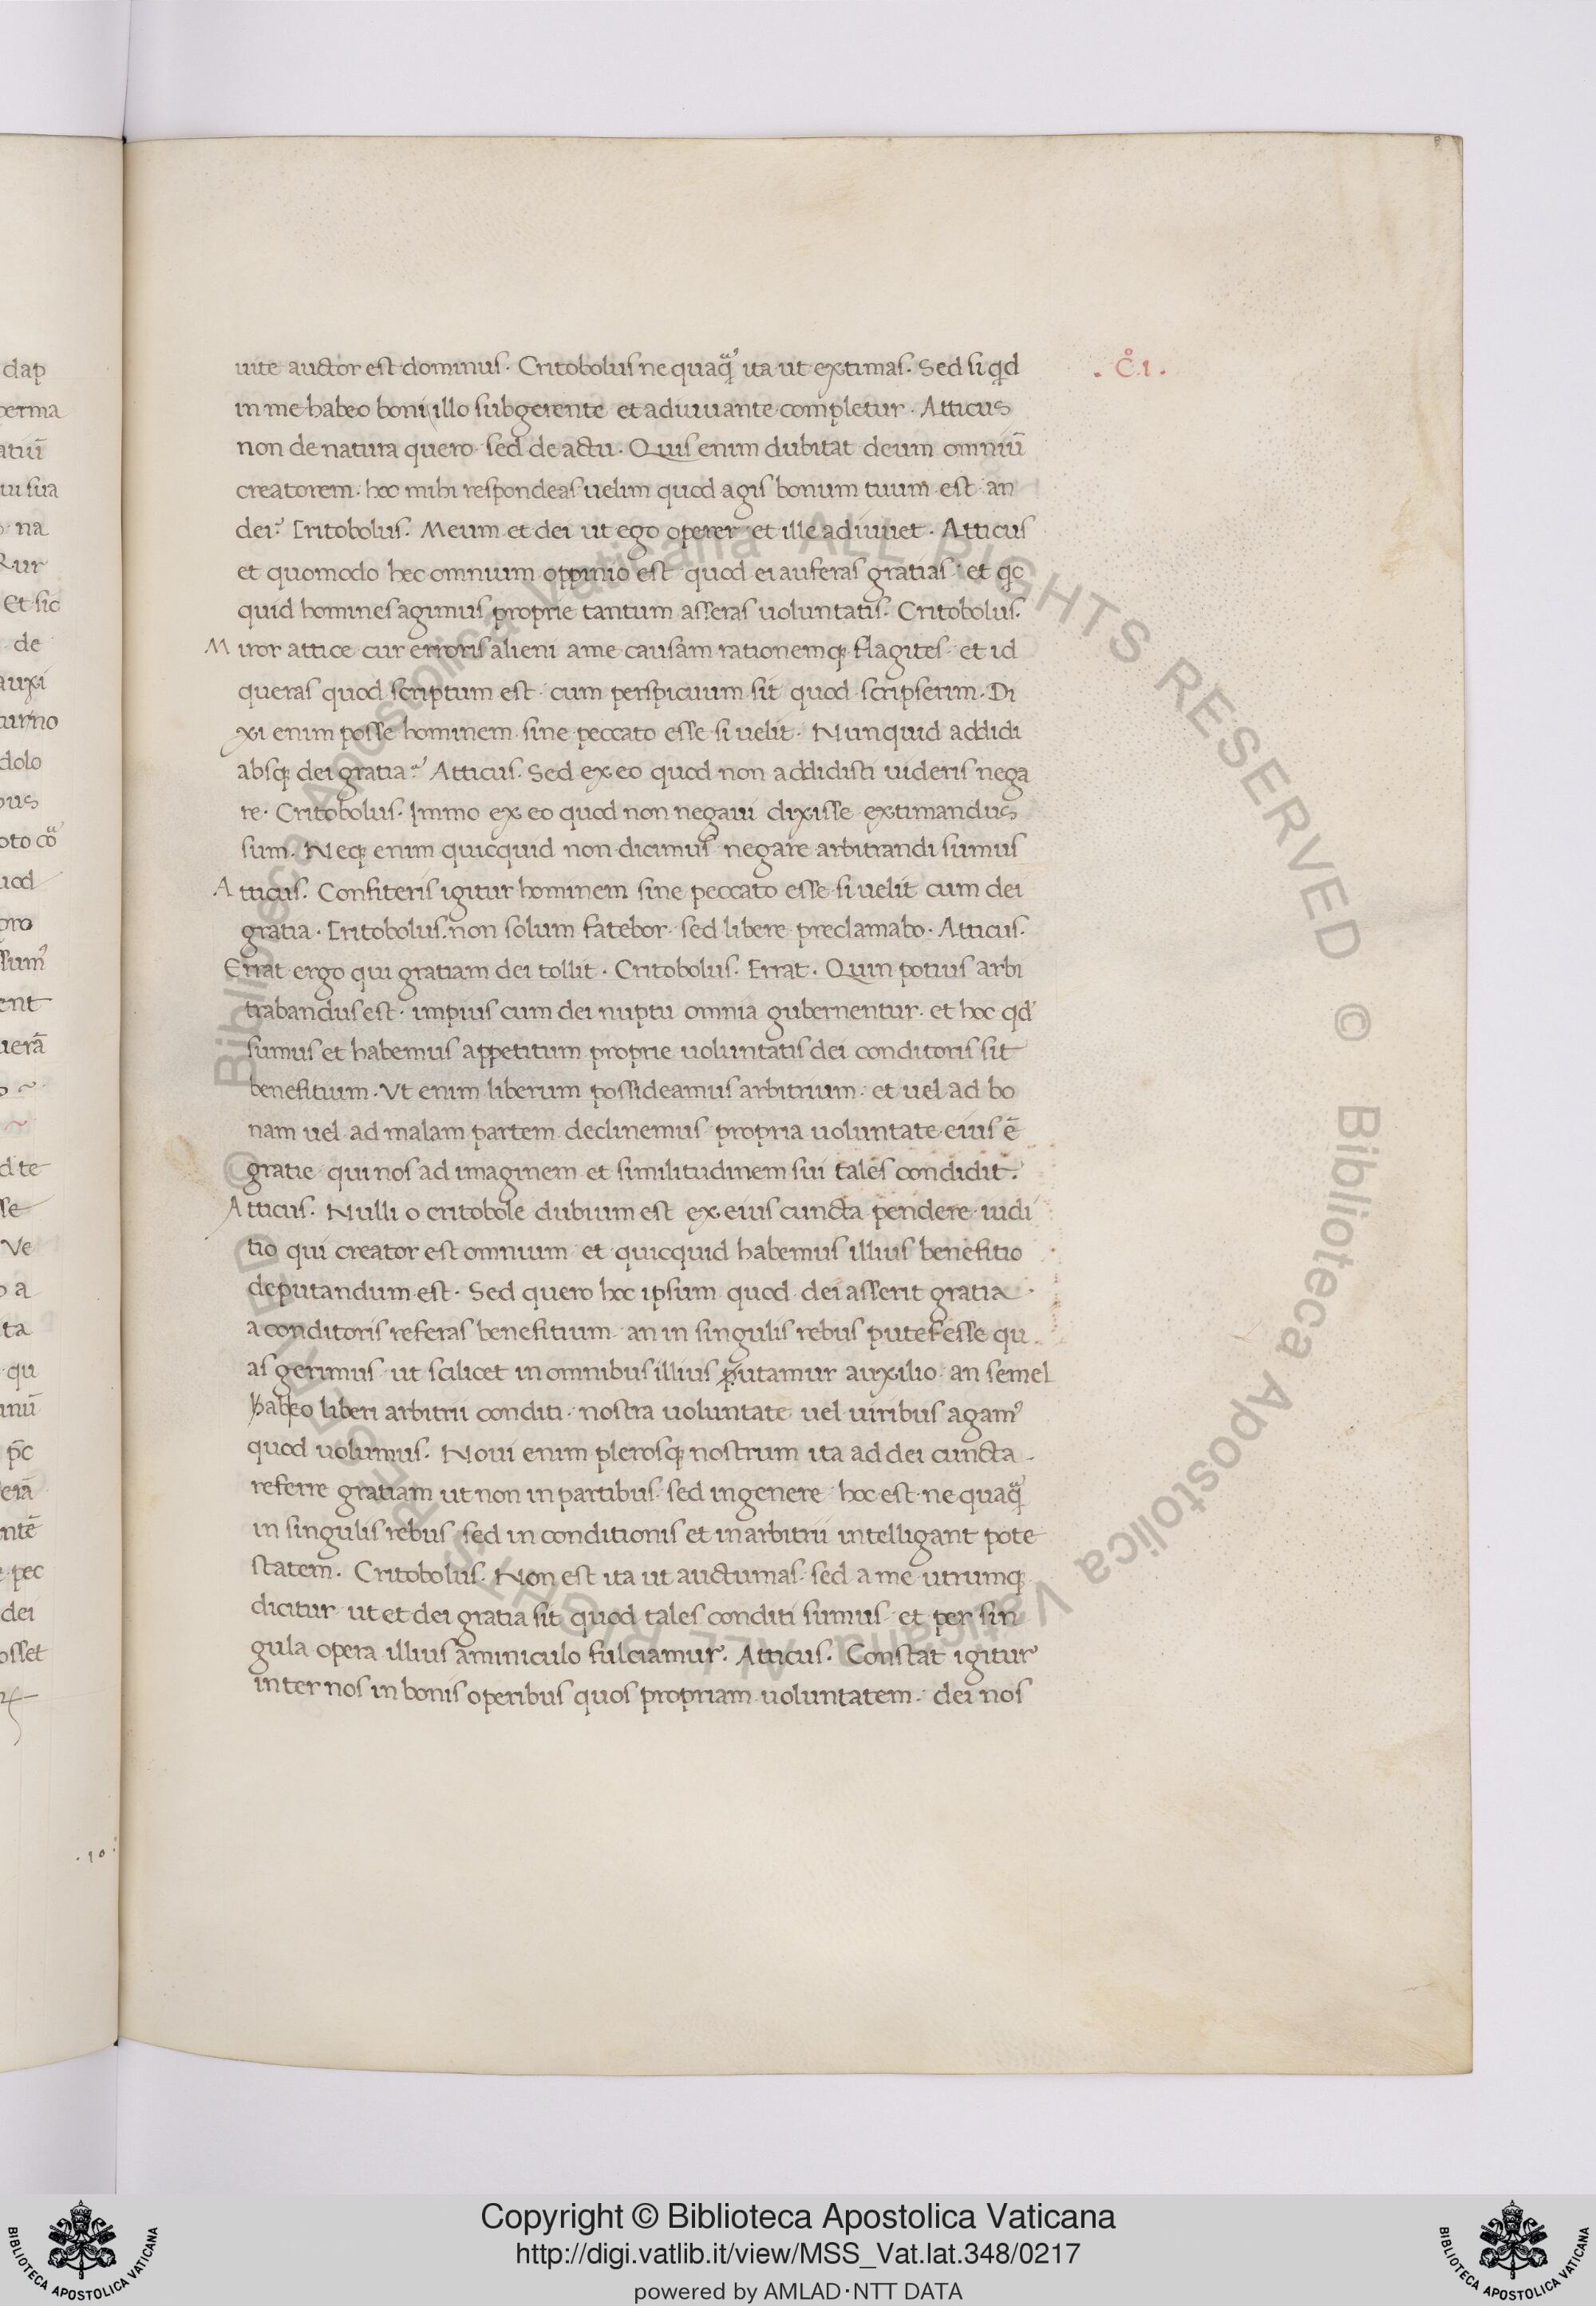 uite auctor est dominus. Critobolus ne quaq̃ ita ut extimas. Sed si qd
in me habeo boni illo subgerente et adiuuante completur. Atticus
non de natura quero sed de actu. Quis enim dubitat deum omniũ
creatorem. hoc mihi respondeas uelim quod agis bonum tuum est an
dei? Critobolus. Meum et dei ut ego operer et ille adiuuet. Atticus
et quomodo hec omnium oppinio est quod ei auferas gratias et qc
quid homines agimus proprie tantum asseras uoluntatis. Critobolus.
Miror attice cur erroris alieni a me causam rationemq; flagites et id
queras quod scriptum est cum perspicuum sit quod scripserim. Di
xi enim posse hominem sine peccato esse si uelit. Nunquid addidi
absq; dei gratia? Atticus. Sed ex eo quod non addidisti uideris nega
re. Critobolus. Immo ex eo quod non negaui dixisse extimandus
sum. Neq; enim quicquid non dicimus negare arbitrandi sumus
Atticus. Confiteris igitur hominem sine peccato esse si uelit cum dei
gratia. Critobolus. non solum fatebor sed libere preclamabo. Atticus.
Errat ergo qui gratiam dei tollit. Critobolus. Errat. Quin potius arbi
trabandus est. impius cum dei nuptu omnia gubernentur. et hoc qd
sumus et habemus appetitum proprie uoluntatis dei conditoris sit
benefitium. Vt enim liberum possideamus arbitrium. et uel ad bo
nam uel ad malam partem declinemus propria uoluntate eius ẽ
gratie qui nos ad imaginem et similitudinem sui tales condidit.
Atticus. Nulli o critobole dubium est ex eius cuncta pendere iudi
tio qui creator est omnium et quicquid habemus illius benefitio
deputandum est. Sed quero hoc ipsum quod dei asserit gratia
a conditoris referas benefitium an in singulis rebus putes esse qu
as gerimus ut scilicet in omnibus illius utamur auxilio an semel
habeo liberi arbitrii conditi. nostra uoluntate uel uiribus agam⁹
quod uolumus. Noui enim plerosq; nostrum ita ad dei cuncta
referre gratiam ut non in partibus sed in genere hoc est ne quaq̃
in singulis rebus sed in conditionis et in arbitrii intelligant pote
statem. Critobolus. Non est ita ut auctumas. sed a me utrumq;
dicitur ut et dei gratia sit quod tales conditi sumus et per sin
gula opera illius aminiculo fulciamur. Atticus. Constat igitur
inter nos in bonis operibus quos propriam uoluntatem. dei nos
. C̊.1.
dap
perma
atiũ
ui sua
na
Rur
Et sic
de
auxi
dolo
pus
oto cõ
uod
pro
ent
uerã
d te
Ve
a
ta
qu
pec
dei
osset
.10.
© Biblioteca Apostolica Vaticana ALL RIGHTS RESERVED © Biblioteca Apostolica Vaticana ALL RIGHTS RESERVED
Copyright © Biblioteca Apostolica Vaticana
http://digi.vatlib.it/view/MSS_Vat.lat.348/0217
powered by AMLAD·NTT DATA
BIBLIOTECA APOSTOLICA VATICANA
BIBLIOTECA APOSTOLICA VATICANA